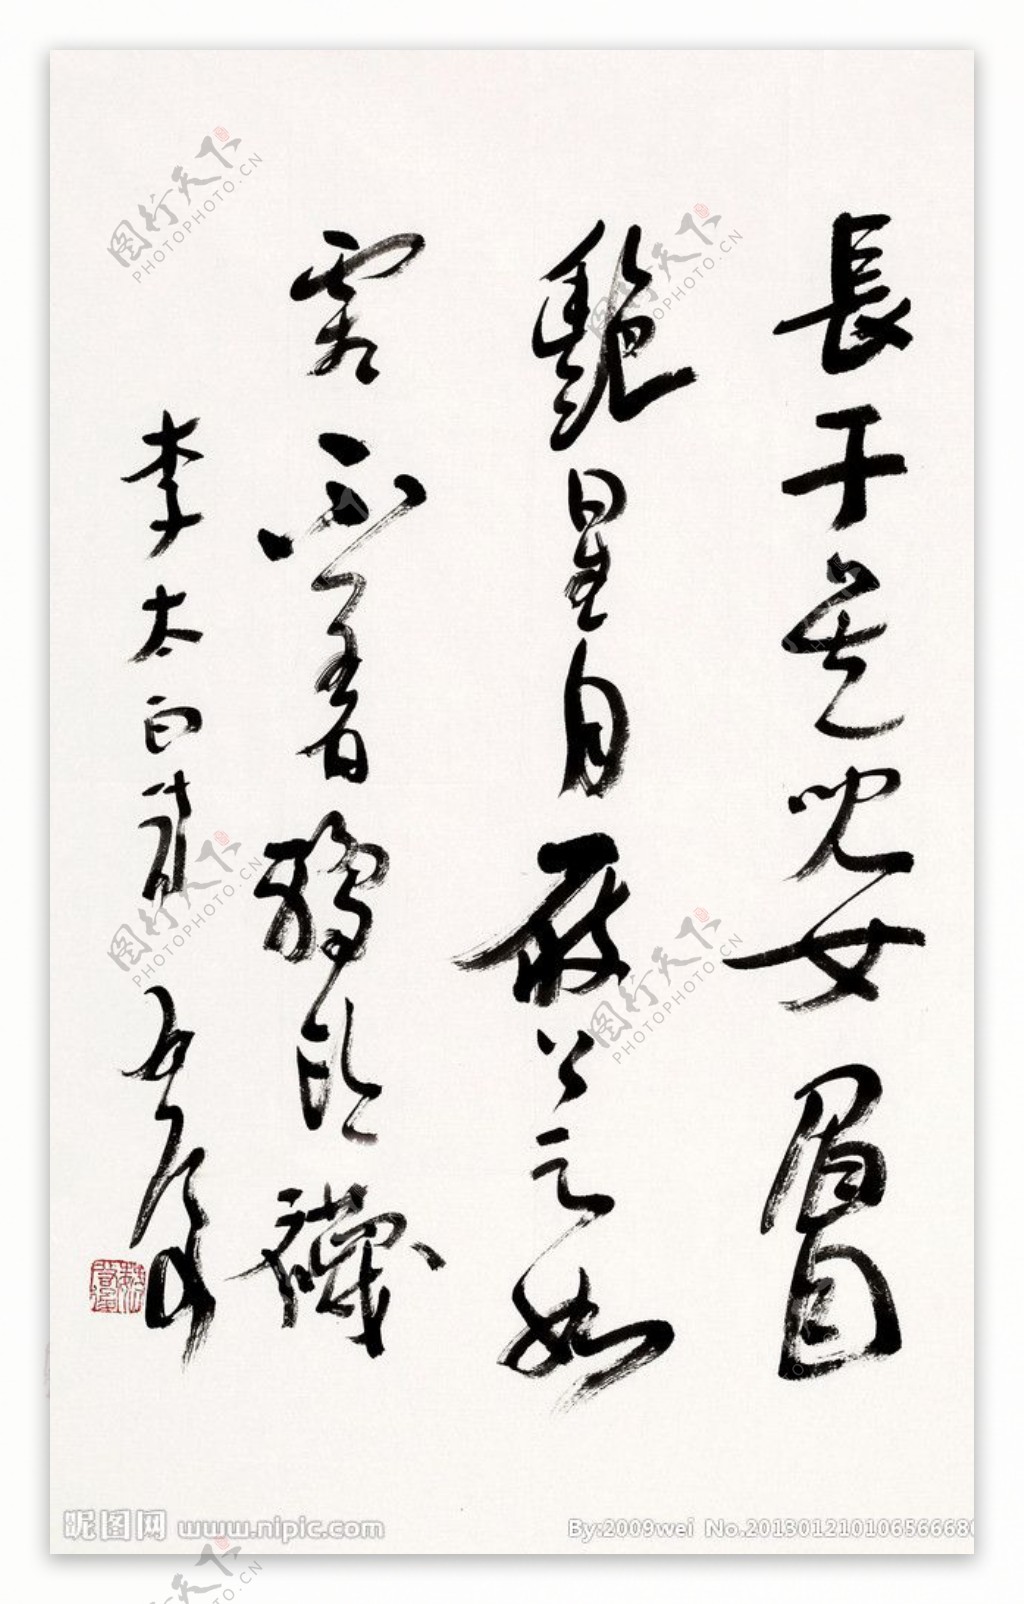 長干吳兒女眉目
艷星月屐上足如
霜不着鴉頭襪
李太白
图行天下
PHOTOPHOTO.CN
图行天下
PHOTOPHOTO.CN
图行天下
PHOTOPHOTO.CN
图行天下
PHOTOPHOTO.CN
昵图网 www.nipic.com
By:2009wei